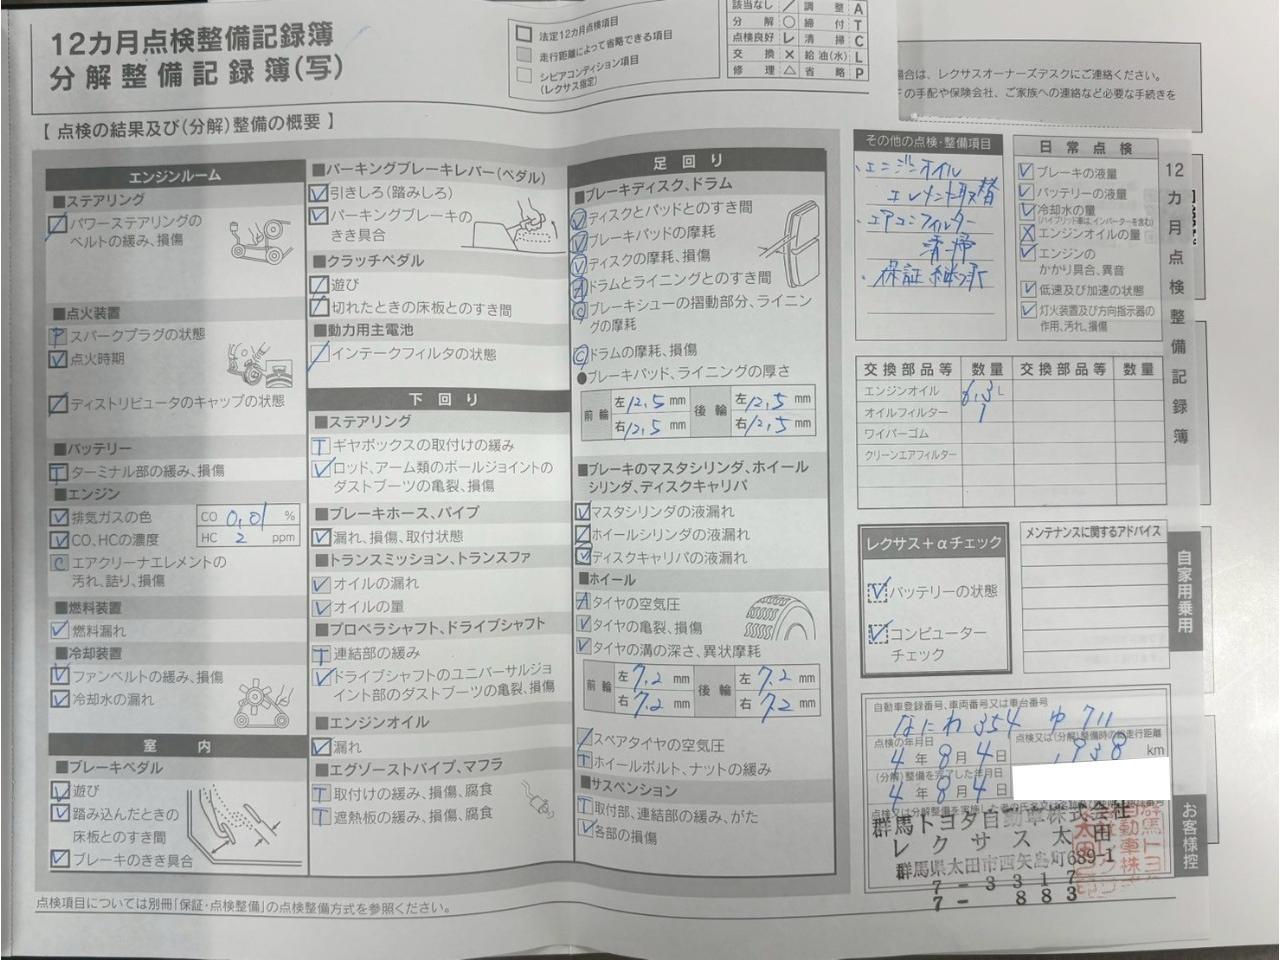 12カ月点検整備記録簿
分解整備記録簿(写)
法定12カ月点検項目
走行距離によって省略できる項目
シビアコンディション項目
(レクサス指定)
該当なし ／ 調整 A
分解 ○ 締付 T
点検良好 レ 清掃 C
交換 × 給油(水) L
修理 △ 省略 P
場合は、レクサスオーナーズデスクにご連絡ください。
の手配や保険会社、ご家族への連絡など必要な手続きを
【 点検の結果及び(分解)整備の概要 】
エンジンルーム
■ステアリング
パワーステアリングの
ベルトの緩み、損傷
■点火装置
P スパークプラグの状態
点火時期
ディストリビュータのキャップの状態
■バッテリー
T ターミナル部の緩み、損傷
■エンジン
排気ガスの色
CO、HCの濃度
CO 0,01 %
HC 2 ppm
C エアクリーナエレメントの
汚れ、詰り、損傷
■燃料装置
燃料漏れ
■冷却装置
ファンベルトの緩み、損傷
冷却水の漏れ
室内
■ブレーキペダル
遊び
踏み込んだときの
床板とのすき間
ブレーキのきき具合
■パーキングブレーキレバー(ペダル)
引きしろ(踏みしろ)
パーキングブレーキの
きき具合
■クラッチペダル
遊び
切れたときの床板とのすき間
■動力用主電池
インテークフィルタの状態
下回り
■ステアリング
T ギヤボックスの取付けの緩み
ロッド、アーム類のボールジョイントの
ダストブーツの亀裂、損傷
■ブレーキホース、パイプ
漏れ、損傷、取付状態
■トランスミッション、トランスファ
オイルの漏れ
オイルの量
■プロペラシャフト、ドライブシャフト
T 連結部の緩み
ドライブシャフトのユニバーサルジョ
イント部のダストブーツの亀裂、損傷
■エンジンオイル
漏れ
■エグゾーストパイプ、マフラ
T 取付けの緩み、損傷、腐食
T 遮熱板の緩み、損傷、腐食
足回り
■ブレーキディスク、ドラム
ディスクとパッドとのすき間
ブレーキパッドの摩耗
ディスクの摩耗、損傷
A ドラムとライニングとのすき間
C ブレーキシューの摺動部分、ライニン
グの摩耗
C ドラムの摩耗、損傷
●ブレーキパッド、ライニングの厚さ
前輪 左 12,5 mm 後輪 左 12,5 mm
右 12,5 mm 右 12,5 mm
■ブレーキのマスタシリンダ、ホイール
シリンダ、ディスクキャリパ
マスタシリンダの液漏れ
ホイールシリンダの液漏れ
ディスクキャリパの液漏れ
■ホイール
A タイヤの空気圧
タイヤの亀裂、損傷
タイヤの溝の深さ、異状摩耗
前輪 左 7,2 mm 後輪 左 7,2 mm
右 7,2 mm 右 7,2 mm
スペアタイヤの空気圧
T ホイールボルト、ナットの緩み
■サスペンション
T 取付部、連結部の緩み、がた
各部の損傷
その他の点検・整備項目
・エンジンオイル
エレメント取替
・エアコンフィルター
清掃
・保証継承
日常点検
ブレーキの液量
バッテリーの液量
冷却水の量
(ハイブリッド車は、インバーターを含む)
X エンジンオイルの量
エンジンの
かかり具合、異音
低速及び加速の状態
灯火装置及び方向指示器の
作用、汚れ、損傷
交換部品等 数量 交換部品等 数量
エンジンオイル 6,3 L
オイルフィルター 1
ワイパーゴム
クリーンエアフィルター
レクサス+αチェック
バッテリーの状態
コンピューター
チェック
メンテナンスに関するアドバイス
自動車登録番号、車両番号又は車台番号
なにわ 354 ゆ 711
点検の年月日
4年8月4日
938 km
(分解)整備を完了した年月日
4年8月4日
群馬トヨタ自動車株式会社
レクサス太田
群馬県太田市西矢島町689-1
7-3317
7-883
12カ月点検整備記録簿
自家用乗用
お客様控
点検項目については別冊「保証・点検整備」の点検整備方式を参照ください。